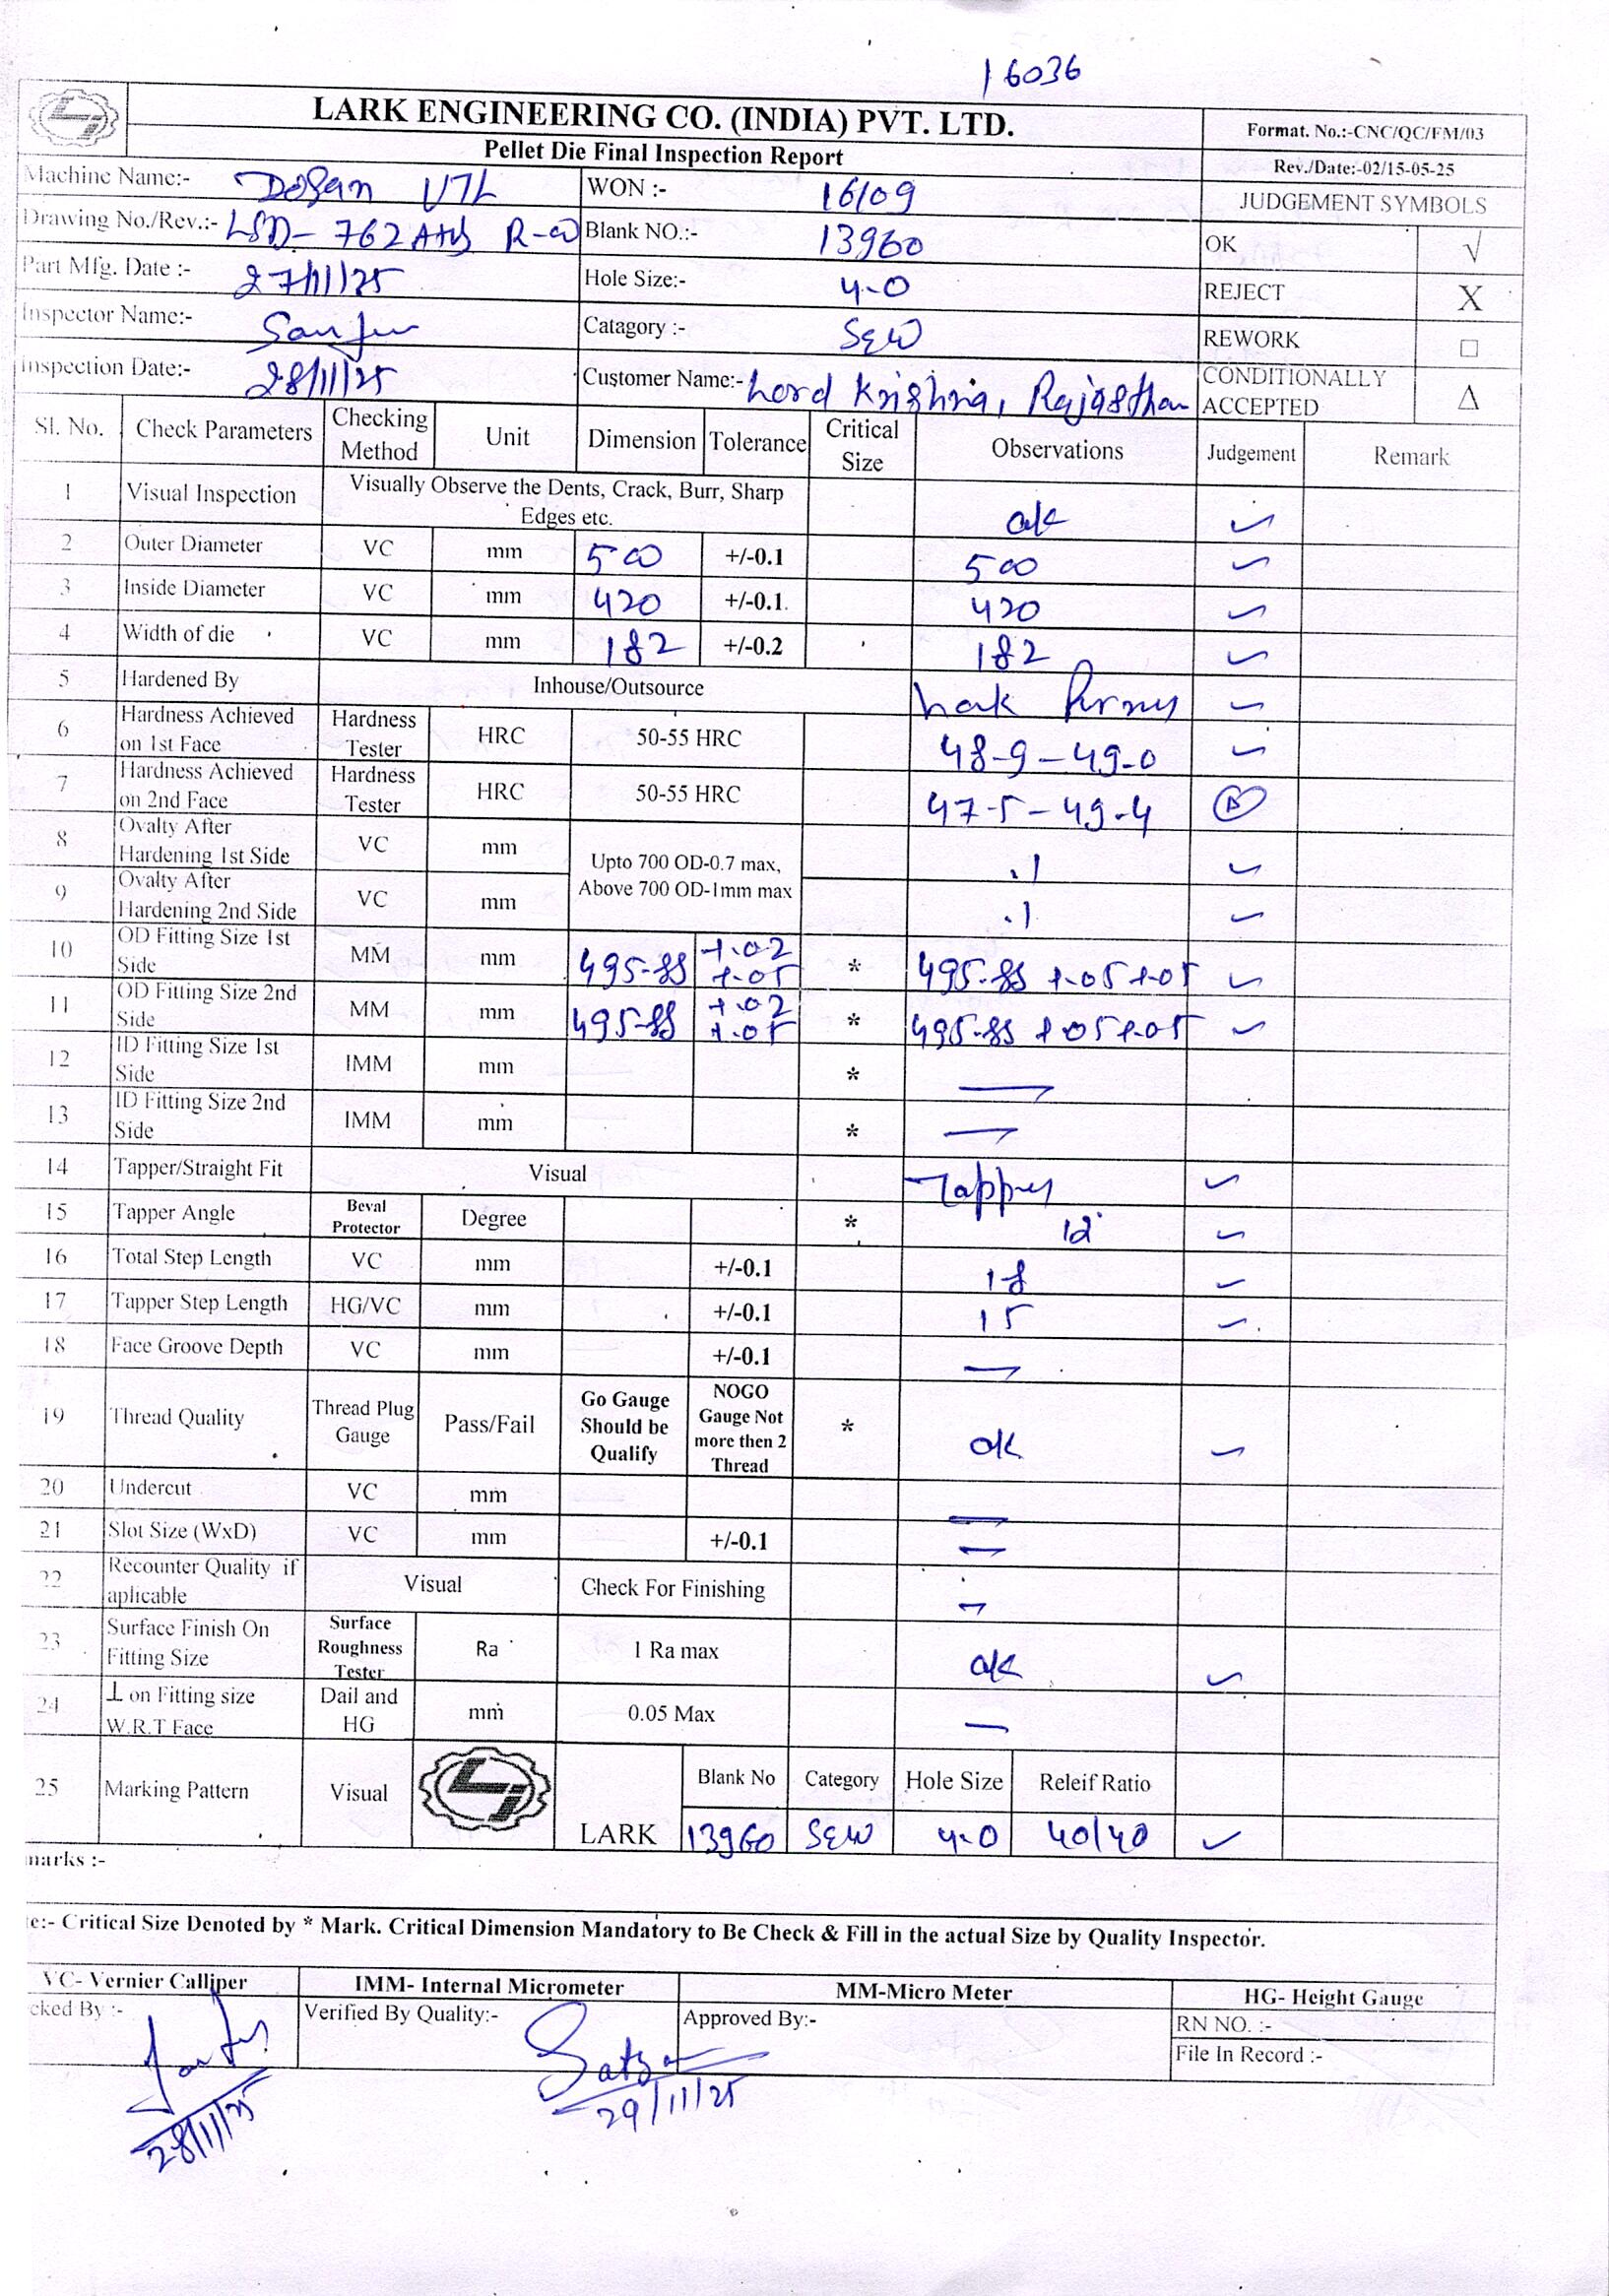 16036
LARK ENGINEERING CO. (INDIA) PVT. LTD.
Format. No.:-CNC/QC/FM/03
Pellet Die Final Inspection Report
Rev./Date:-02/15-05-25
Machine Name:- Dosan VTL WON :- 16109 JUDGEMENT SYMBOLS
Drawing No./Rev.:- LSD-762 R-00 Blank NO.:- 13960 OK √
Part Mfg. Date :- 27/11/25 Hole Size:- 4.0 REJECT X
Inspector Name:- Catagory :- S&W REWORK □
Inspection Date:- 28/11/25 Customer Name:- Lord Krishna, Rajasthan CONDITIONALLY ACCEPTED △
Sl. No. Check Parameters Checking Method Unit Dimension Tolerance Critical Size Observations Judgement Remark
1 Visual Inspection Visually Observe the Dents, Crack, Burr, Sharp Edges etc. ok ✓
2 Outer Diameter VC mm 500 +/-0.1 500 ✓
3 Inside Diameter VC mm 420 +/-0.1. 420 ✓
4 Width of die VC mm 182 +/-0.2 182 ✓
5 Hardened By Inhouse/Outsource Lark ✓
6 Hardness Achieved on 1st Face Hardness Tester HRC 50-55 HRC 48-9-49-0 ✓
7 Hardness Achieved on 2nd Face Hardness Tester HRC 50-55 HRC 47-5-49-4
8 Ovalty After Hardening 1st Side VC mm Upto 700 OD-0.7 max, Above 700 OD-1mm max .1 ✓
9 Ovalty After Hardening 2nd Side VC mm .1 ✓
10 OD Fitting Size 1st Side MM mm 495-88 +.02 +.05 * 495-88 +.05 +.05 ✓
11 OD Fitting Size 2nd Side MM mm 495-88 +.02 +.05 * 495-88 +.05 +.05 ✓
12 ID Fitting Size 1st Side IMM mm * —
13 ID Fitting Size 2nd Side IMM mm * —
14 Tapper/Straight Fit Visual Tapper ✓
15 Tapper Angle Beval Protector Degree * 12° ✓
16 Total Step Length VC mm +/-0.1 18 ✓
17 Tapper Step Length HG/VC mm +/-0.1 15 ✓
18 Face Groove Depth VC mm +/-0.1 —
19 Thread Quality Thread Plug Gauge Pass/Fail Go Gauge Should be Qualify NOGO Gauge Not more then 2 Thread * ok ✓
20 Undercut VC mm —
21 Slot Size (WxD) VC mm +/-0.1 —
22 Recounter Quality if aplicable Visual Check For Finishing —
23 Surface Finish On Fitting Size Surface Roughness Tester Ra 1 Ra max ok ✓
24 ⊥ on Fitting size W.R.T Face Dail and HG mm 0.05 Max —
25 Marking Pattern Visual LARK Blank No Category Hole Size Releif Ratio
13960 S&W 4.0 40/40 ✓
marks :-
e:- Critical Size Denoted by * Mark. Critical Dimension Mandatory to Be Check & Fill in the actual Size by Quality Inspector.
VC- Vernier Calliper IMM- Internal Micrometer MM-Micro Meter HG- Height Gauge
cked By :- Verified By Quality:- Approved By:- RN NO. :-
File In Record :-
28/11/25 29/11/25